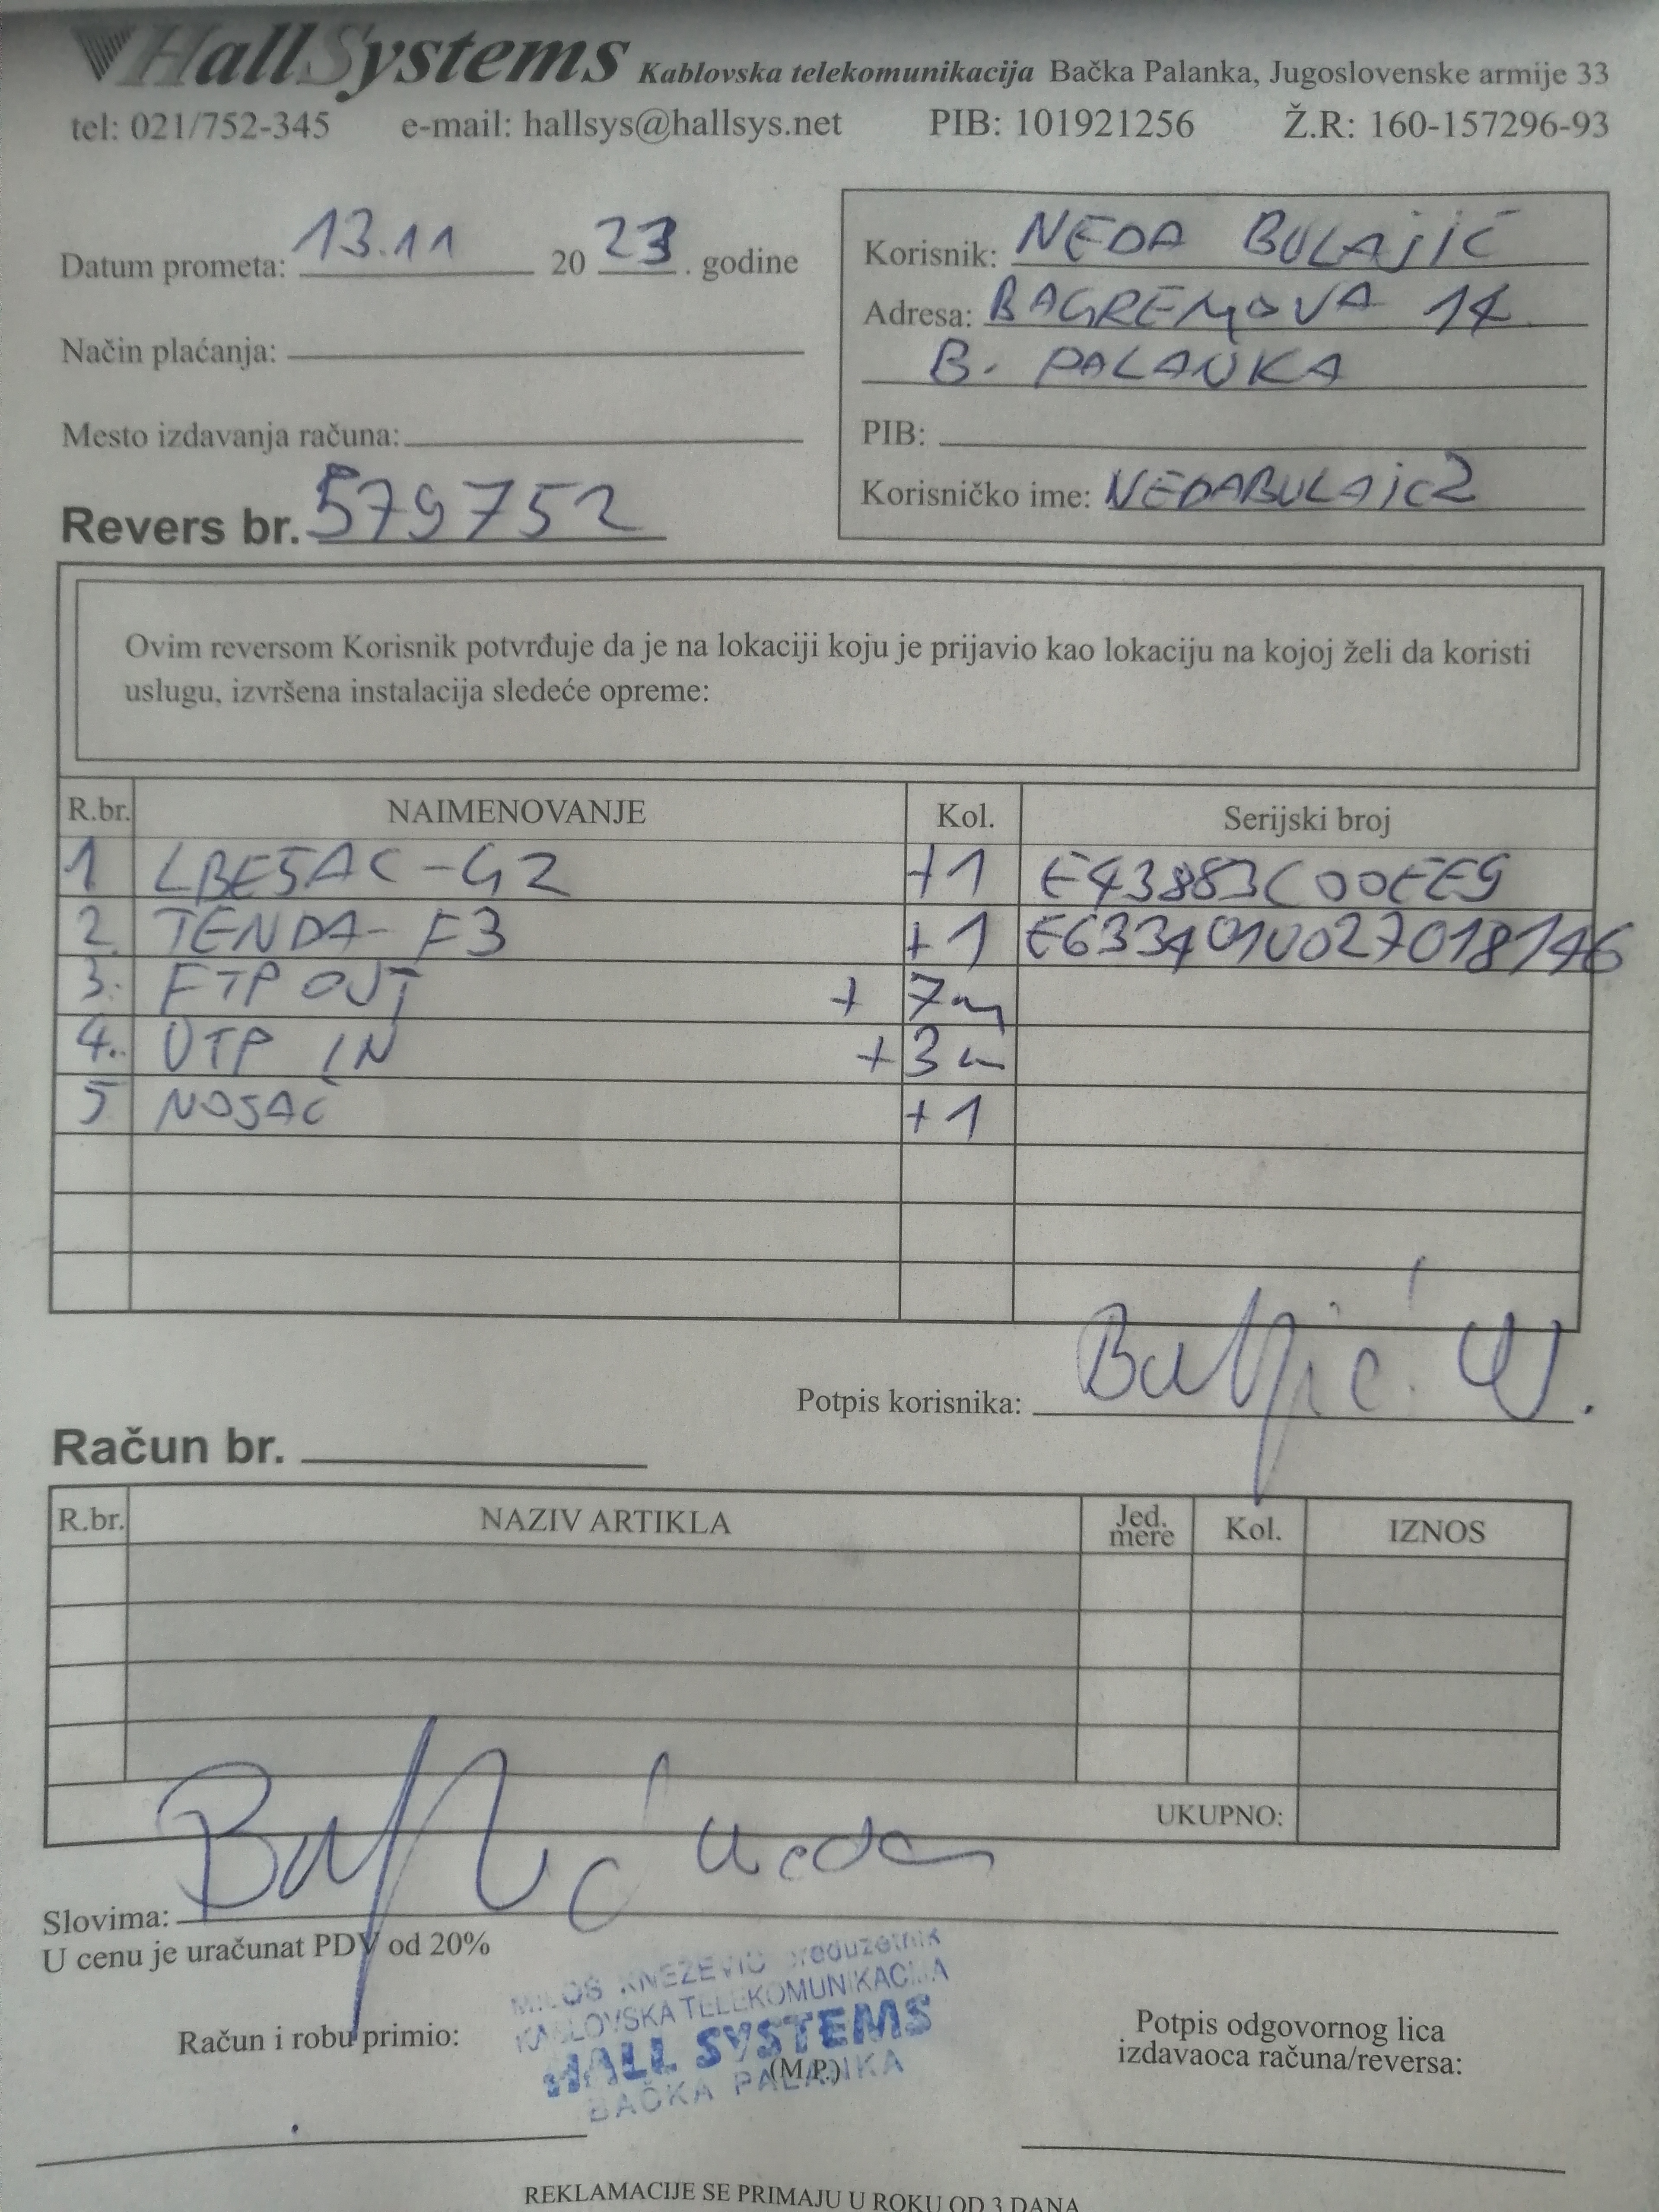 HallSystems Kablovska telekomunikacija Bačka Palanka, Jugoslovenske armije 33
tel: 021/752-345 e-mail: hallsys@hallsys.net PIB: 101921256 Ž.R: 160-157296-93
Datum prometa: 13.11 2023. godine
Način plaćanja:
Mesto izdavanja računa:
Revers br. 579752
Korisnik: NEDA BULAJIĆ
Adresa: BAGREMOVA 14
B. PALANKA
PIB:
Korisničko ime: NEDABULAJIC2
Ovim reversom Korisnik potvrđuje da je na lokaciji koju je prijavio kao lokaciju na kojoj želi da koristi
uslugu, izvršena instalacija sledeće opreme:
R.br. NAIMENOVANJE Kol. Serijski broj
1 LBE5AC-G2 +1 E43883C00EE9
2. TENDA-F3 +1 E6334010027018146
3. FTP OUT + 7m
4. UTP IN +3m
5 NOSAČ +1
Potpis korisnika: Bulajić N.
Račun br.
R.br. NAZIV ARTIKLA Jed. mere Kol. IZNOS
UKUPNO:
Slovima: Bulajić Neda
U cenu je uračunat PDV od 20%
MILOŠ KNEŽEVIĆ preduzetnik
KABLOVSKA TELEKOMUNIKACIJA
HALL SYSTEMS
BAČKA PALANKA
Račun i robu primio:
(M.P.)
Potpis odgovornog lica
izdavaoca računa/reversa:
REKLAMACIJE SE PRIMAJU U ROKU OD 3 DANA